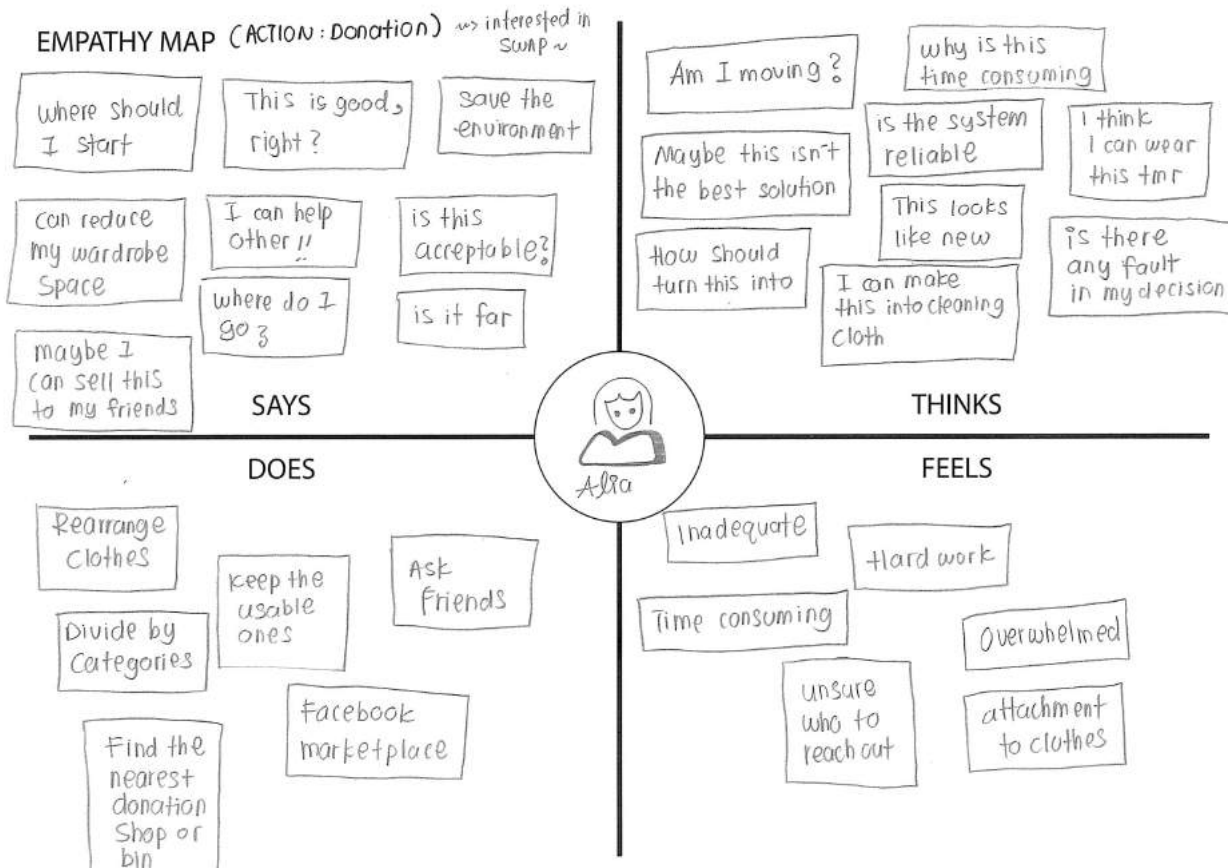 EMPATHY MAP (ACTION : Donation) ~> interested in
SWAP ~
where should
I start
This is good,
right?
save the
environment
can reduce
my wardrobe
space
I can help
other !!
is this
acceptable?
where do I
go?
is it far
maybe I
can sell this
to my friends
SAYS
Am I moving?
why is this
time consuming
Maybe this isn't
the best solution
is the system
reliable
I think
I can wear
this tmr
This looks
like new
How should
turn this into
I can make
this into cleaning
cloth
is there
any fault
in my decision
THINKS
Alia
DOES
Rearrange
Clothes
keep the
usable
ones
Ask
Friends
Divide by
Categories
Facebook
marketplace
Find the
nearest
donation
Shop or
bin
FEELS
Inadequate
Hard work
Time consuming
Overwhelmed
unsure
who to
reach out
attachment
to clothes